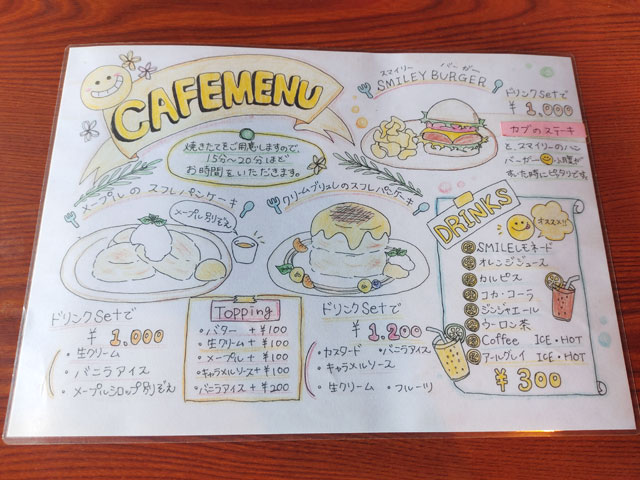 CAFEMENU
焼きたてをご用意しますので、
15分〜20分ほど
お時間をいただきます。
スマイリー バーガー
SMILEY BURGER
ドリンクSetで
¥1,000
カブのステーキ
と、スマイリーのハン
バーガー
小腹が
すいた時にピッタリです。
メープルの スフレパンケーキ
メープル別ぞえ
ドリンクSetで
¥1.000
・生クリーム
・バニラアイス
・メープルシロップ別ぞえ
Topping
・バター +¥100
・生クリーム +¥100
・メープル +¥100
・キャラメルソース+¥100
・バニラアイス +¥200
クリームブリュレのスフレパンケーキ
ドリンクSetで
¥1.200
・カスタード ・バニラアイス
・キャラメルソース
・生クリーム ・フルーツ
DRINKS
オススメ!!
SMILEレモネード
オレンジジュース
カルピス
コカ・コーラ
ジンジャエール
ウーロン茶
Coffee ICE・HOT
アールグレイ ICE・HOT
¥300